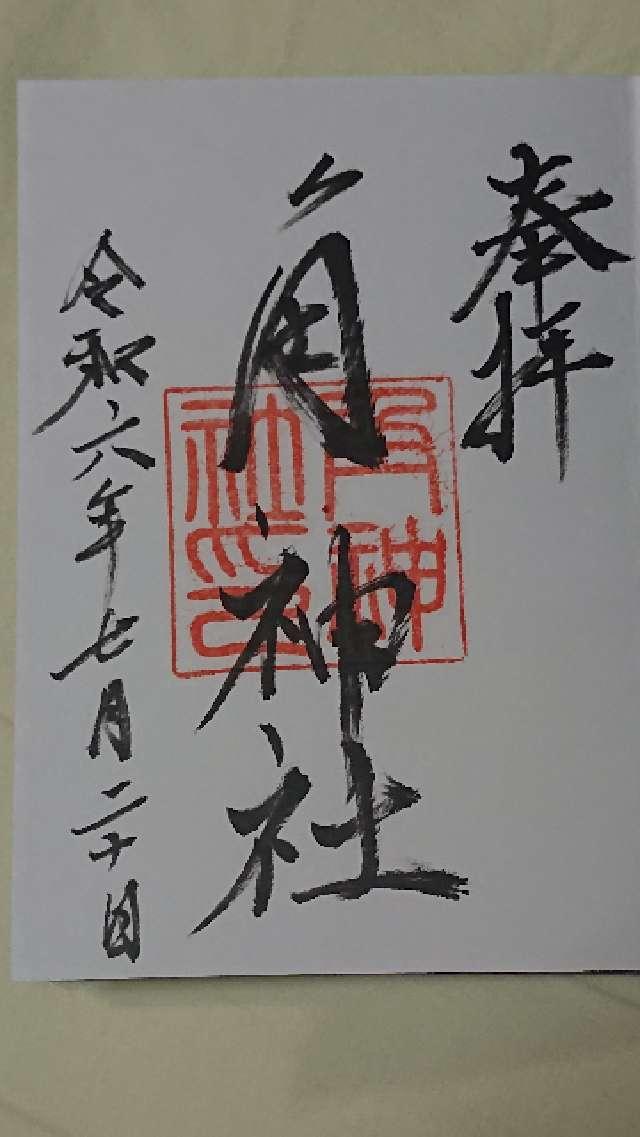 奉拝
角神社
角神
社印
令和六年七月二十日